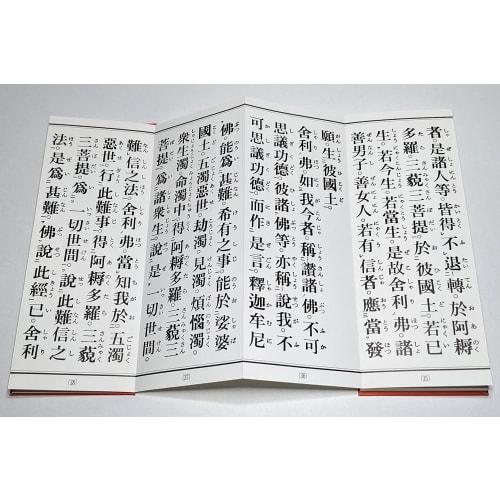 者。是諸人等。皆得不退轉。於阿耨
多羅。三藐三菩提。於彼國土。若已
生。若今生。若當生。是故舍利弗。諸
善男子。善女人。若有信者。應當發
(35)
願。生彼國土。
舍利弗。如我今者。稱讚諸佛。不可
思議功德。彼諸佛等。亦稱說我。不
可思議功德。而作是言。釋迦牟尼
(36)
佛。能爲甚難。希有之事。能於娑婆
國土。五濁惡世。劫濁。見濁。煩惱濁。
衆生濁。命濁中。得阿耨多羅。三藐三
菩提。爲諸衆生。說是一切世間。
(37)
難信之法。舍利弗。當知我於五濁
惡世。行此難事。得阿耨多羅。三藐
三菩提。爲一切世間。說此難信之
法。是爲甚難。佛說此經已。舍利
(38)